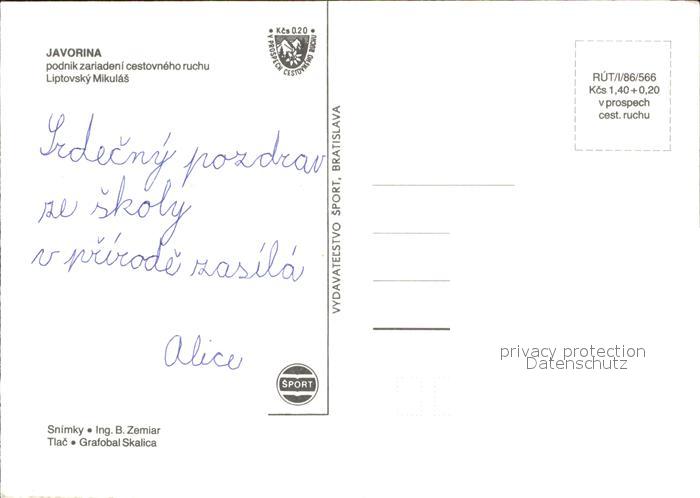 JAVORINA
podnik zariadení cestovného ruchu
Liptovský Mikuláš
Kčs 0.20
V PROSPECH CESTOVNÉHO RUCHU
RÚT/I/86/566
Kčs 1,40 + 0,20
v prospech
cest. ruchu
Srdečný pozdrav
ze školy
v přírodě zasílá
Alice
VYDAVATEĽSTVO ŠPORT, BRATISLAVA
ŠPORT
privacy protection
Datenschutz
Snímky • Ing. B. Zemiar
Tlač • Grafobal Skalica